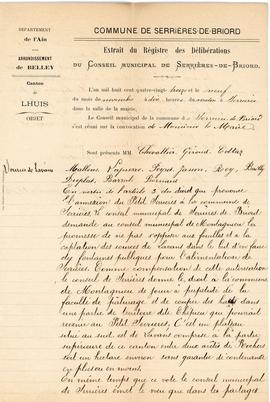 DÉPARTEMENT
de l'Ain
ARRONDISSEMENT
de BELLEY
Canton
de
LHUIS
OBJET
Sources de Lavans
COMMUNE DE SERRIÈRES-DE-BRIORD
Extrait du Régistre des Délibérations
DU CONSEIL MUNICIPAL DE SERRIÈRES-DE-BRIORD.
L'an mil huit cent quatre-vingt et neuf
du mois de novembre à dix heures du matin à Serrières
dans la salle de la mairie,
Le Conseil municipal de la commune de Serrières de Briord
s'est réuni sur la convocation de Monsieur le Maire
Sont présents MM. Chevallier, Girard,
En vertu de l'article 3 du décret qui prononce
l'annexion du Petit Serrières à la commune de
Serrières le conseil municipal de Serrières de Briord
demande au conseil municipal de Montagnieu la
promesse de ne pas s'opposer aux fouilles et à la
captation des sources de Lavans dans le but d'en faire
des fontaines publiques pour l'alimentation de
Serrières. Comme compensation de cette autorisation
le conseil de Serrières donne le droit à la commune
de Montagnieu de jouir à perpétuité de la
faculté de pâturage et de couper des bois dans
une partie du territoire dite qui pourrait
revenir au Petit Serrières. C'est un plateau
situé au sud-est de Lavans compris à la partie
supérieure de ce canton entre deux arêtes de Rochers
soit un hectare environ sans garantie de contenance
en plus ou en moins.
En même temps que ce vote le conseil municipal
de Serrières émet le vœu que dans le partage